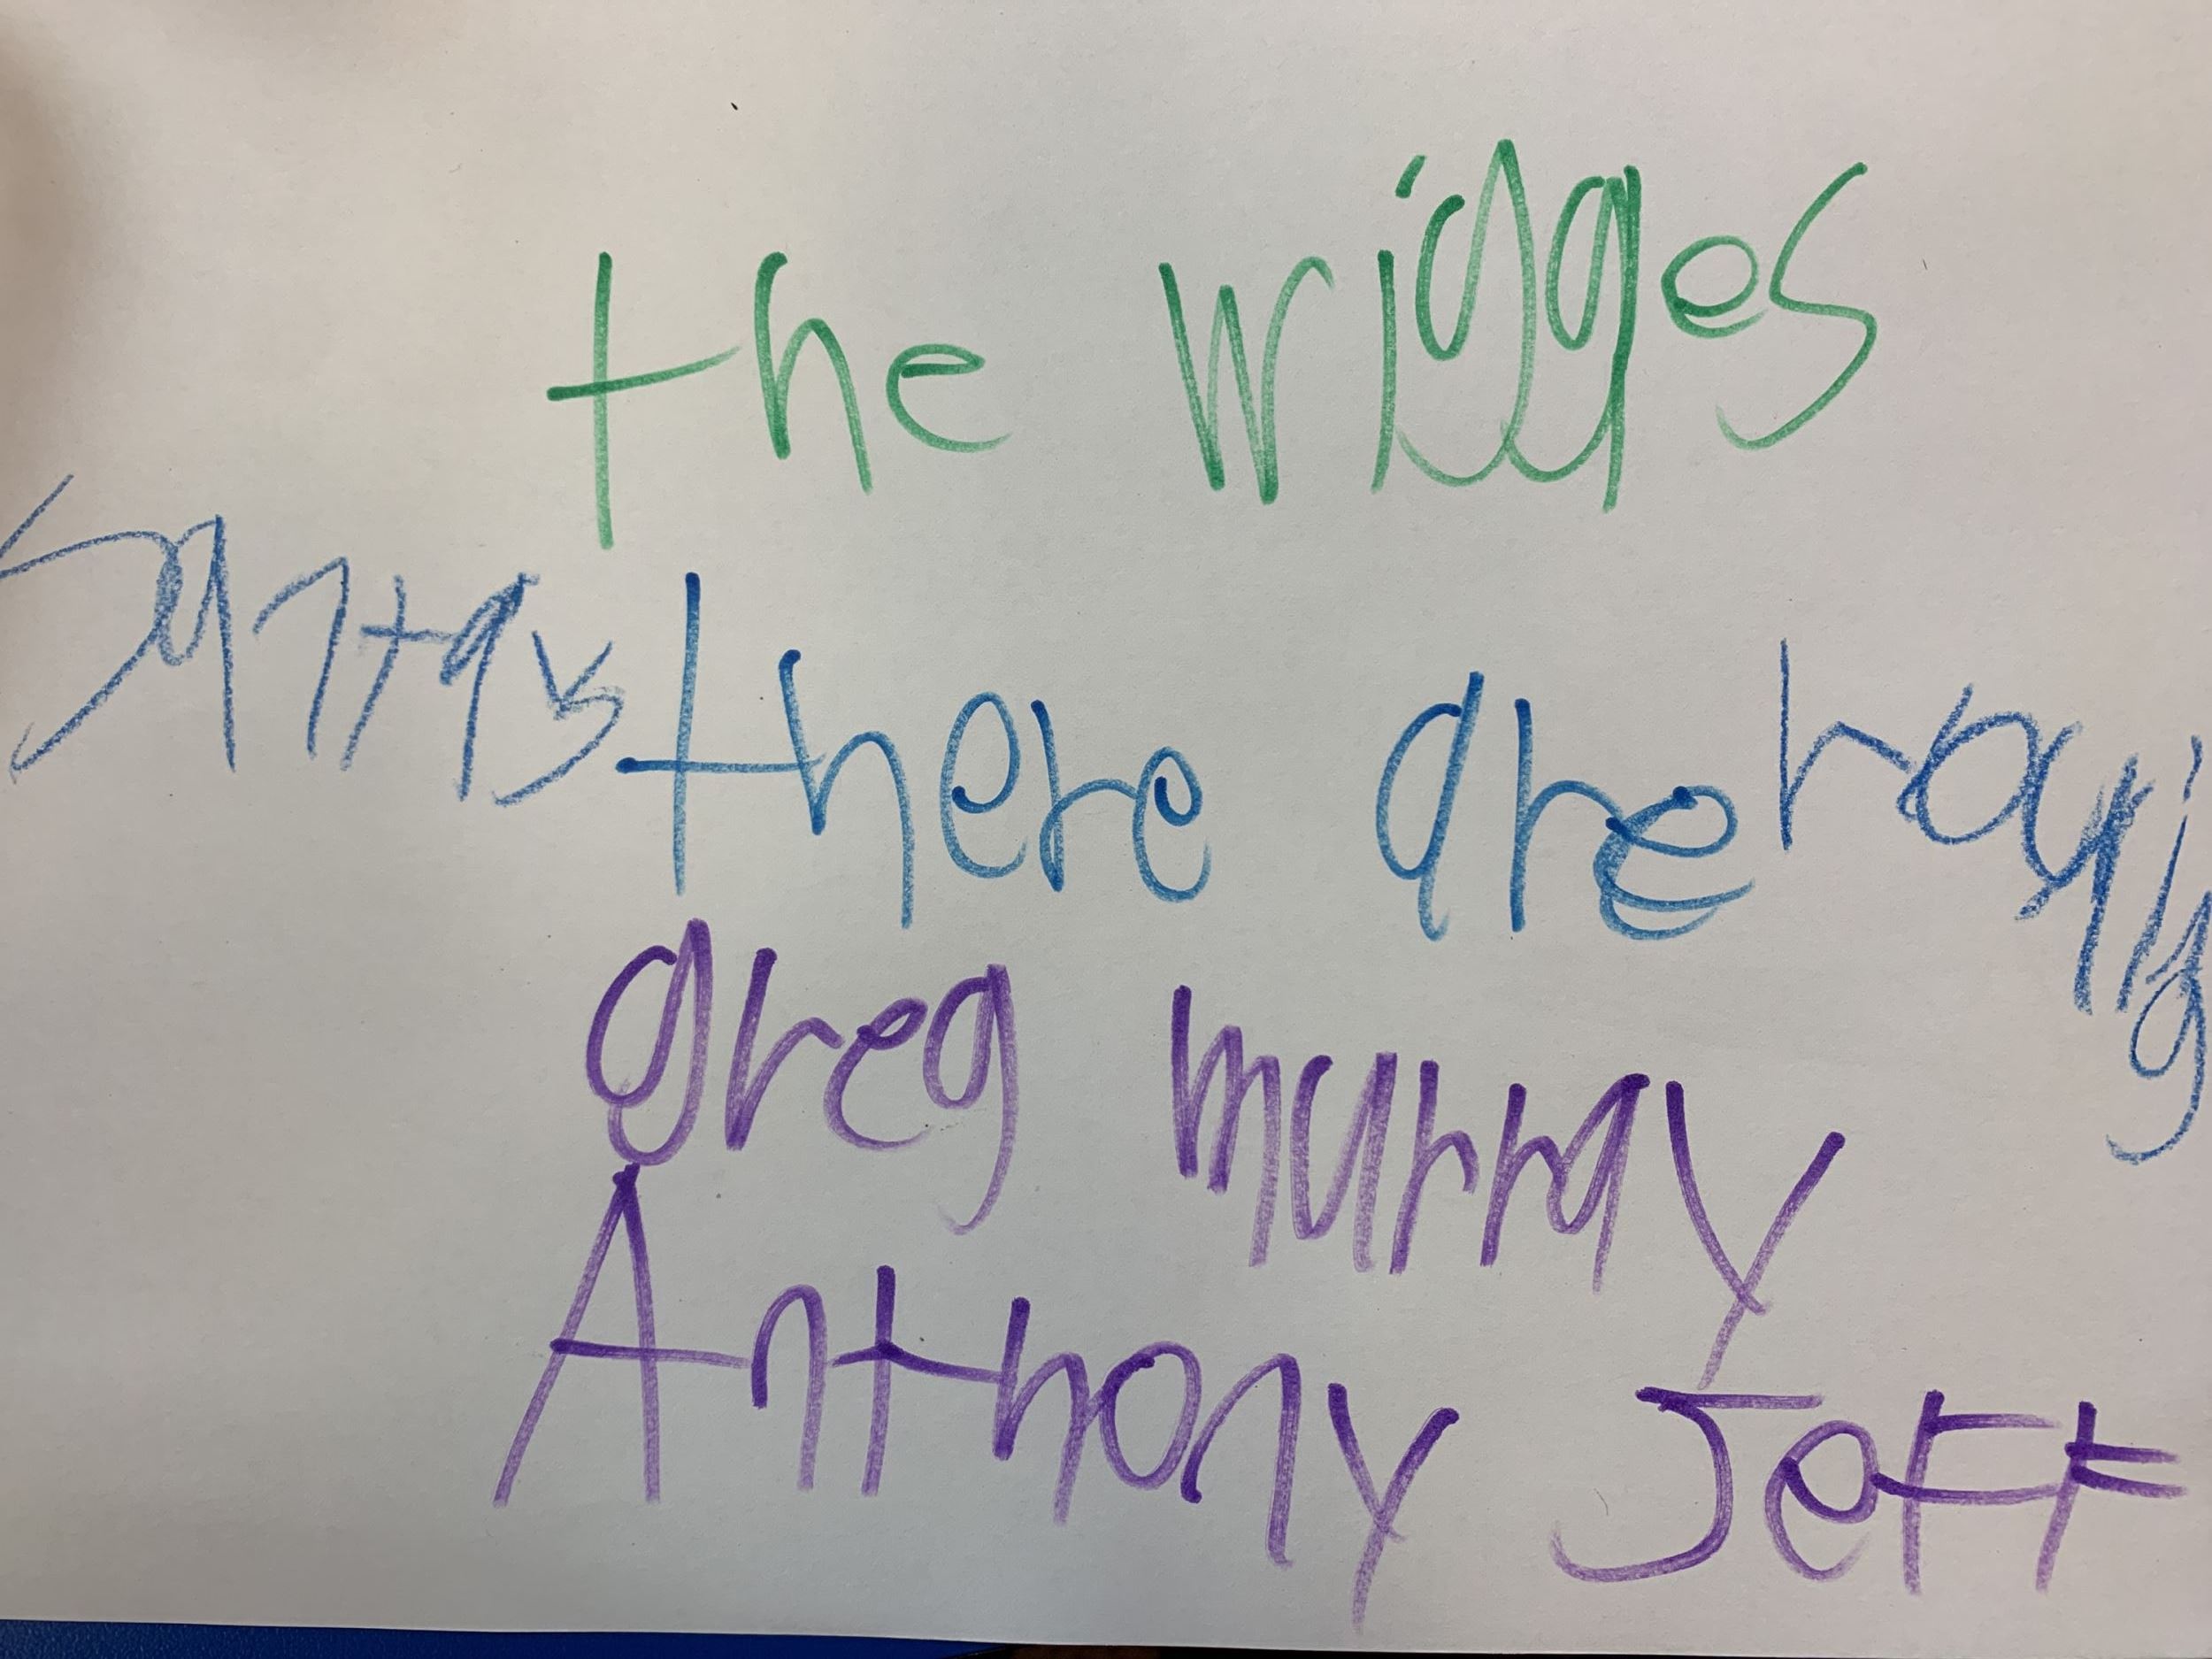 the wigges
Santas there are
greg murray
Anthony Jeff